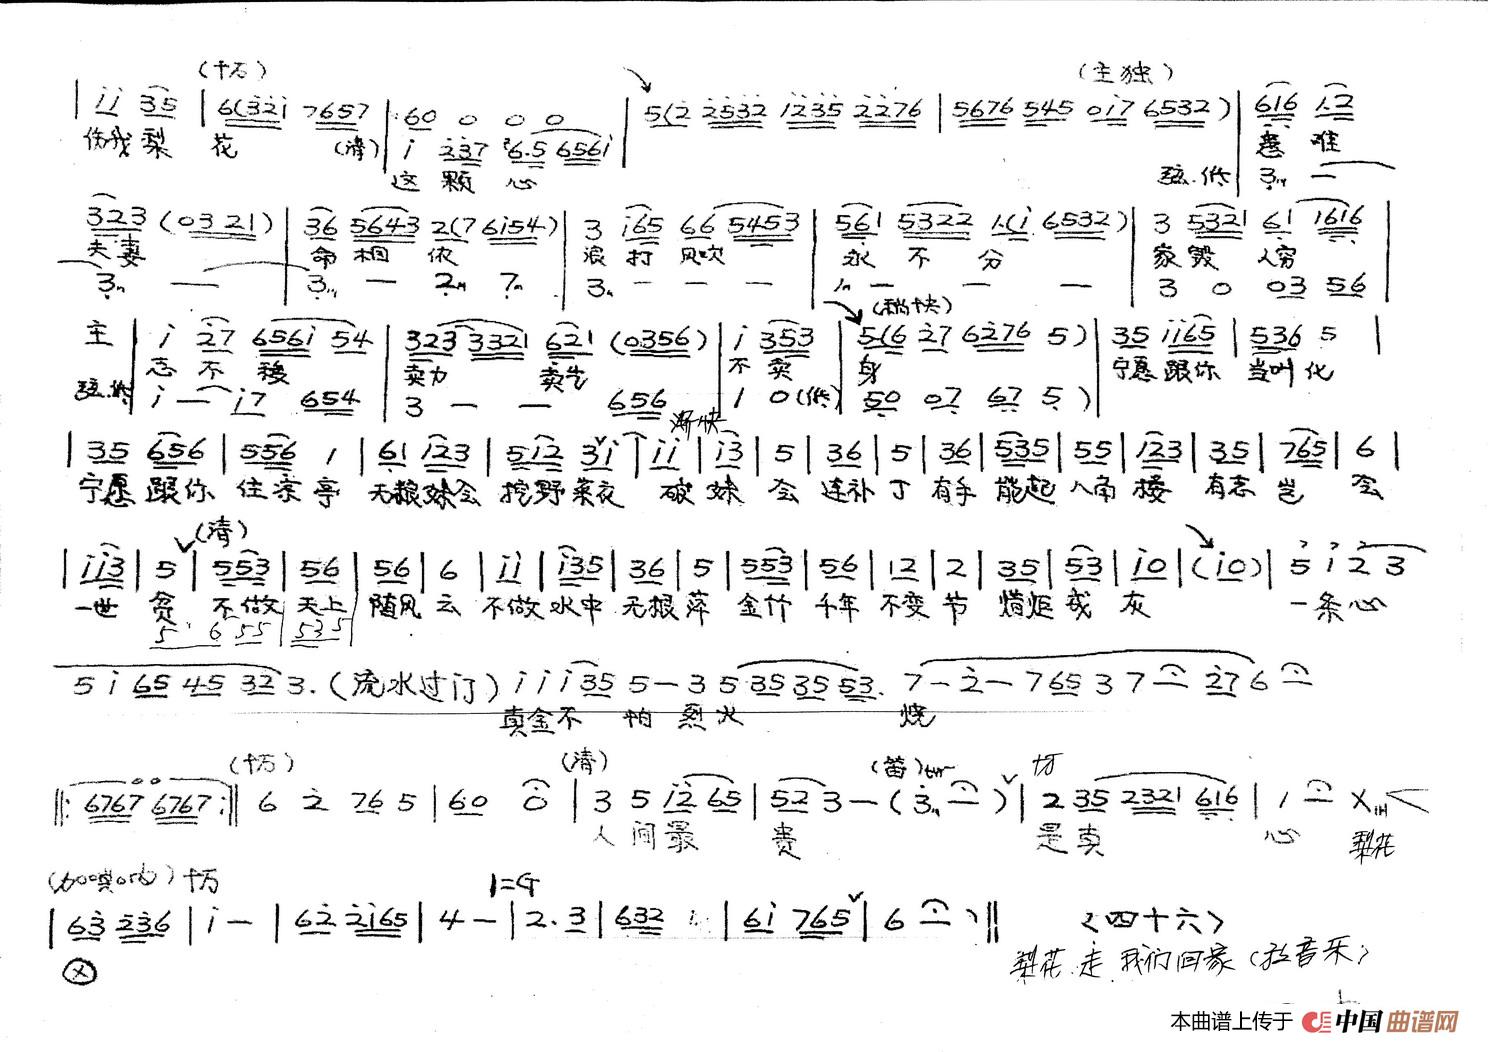 (十万) (主独)
| i i 3 5 | 6(3 2 i 7657 | 60 0 0 0 | 5(2 2532 1235 2276 | 5676 545 0i7 6532) | 616 1.2
伤我 梨 花 (清) i 237 6.5 656i 患 难
这 颗 心 弦.伴 3 —
323 (0321) | 36 5643 2(7 6i54) | 3 i65 66 5453 | 561 5322 1.(i 6532) | 3 5321 61 1616 |
夫妻 命 相 依 浪 打 风吹 永 不 分 家 毁 人穷
3 — | 3 — 2 7 | 3 — — — | 1 — — — | 3 0 03 56 |
(稍快)
主 | i 27 656i 54 | 323 3321 621 (0356) | i 353 | 5(6 27 6276 5) | 35 ii65 | 536 5 |
志 不 移 卖力 卖艺 不 卖 身 宁愿 跟你 当叫 化
弦.伴 i — i7 654 | 3 — — 656 | 1 0 (伴) | 50 07 67 5 )
渐快
| 35 656 | 556 1 | 61 i23 | 5i2 3i | ii | i3 | 5 | 36 | 5 | 36 | 535 | 55 | i23 | 35 | 765 | 6 |
宁愿 跟你 住凉 亭 无粮 妹会 挖野 菜衣 破 妹 会 连补 丁 有手 能起 八角 楼 有志 岂 会
(清)
| ii3 | 5 | 553 | 56 | 56 | 6 | ii | i35 | 36 | 5 | 553 | 56 | i2 | 2 | 35 | 53 | i0 | (i0) | 5 i 2 3
一世 贫 不做 天上 随风 云 不做 水中 无根 萍 金竹 千年 不变 节 灯炬 成 灰 一条心
5 6 55 | 535 |
5 i 65 45 32 3. (流水过门) i i i 35 5 — 3 5 35 35 53. 7 — 2 — 7 65 3 7 — 27 6 —
真金不 怕 烈 火 烧
(十万) (清) (笛) 十万
‖: 6767 6767 :‖ 6 2 76 5 | 60 0 | 3 5 i2 65 | 52 3 — (3 — ) | 2 35 2321 616 | 1 — X
人 间 最 贵 是 真 心 梨花
十万 1=G
| 63 536 | i — | 62 2i65 | 4 — | 2. 3 | 632 | 6i 765 | 6 — ) ‖ <四十六>
梨花 走 我们回家 (放音乐)
本曲谱上传于 中国曲谱网